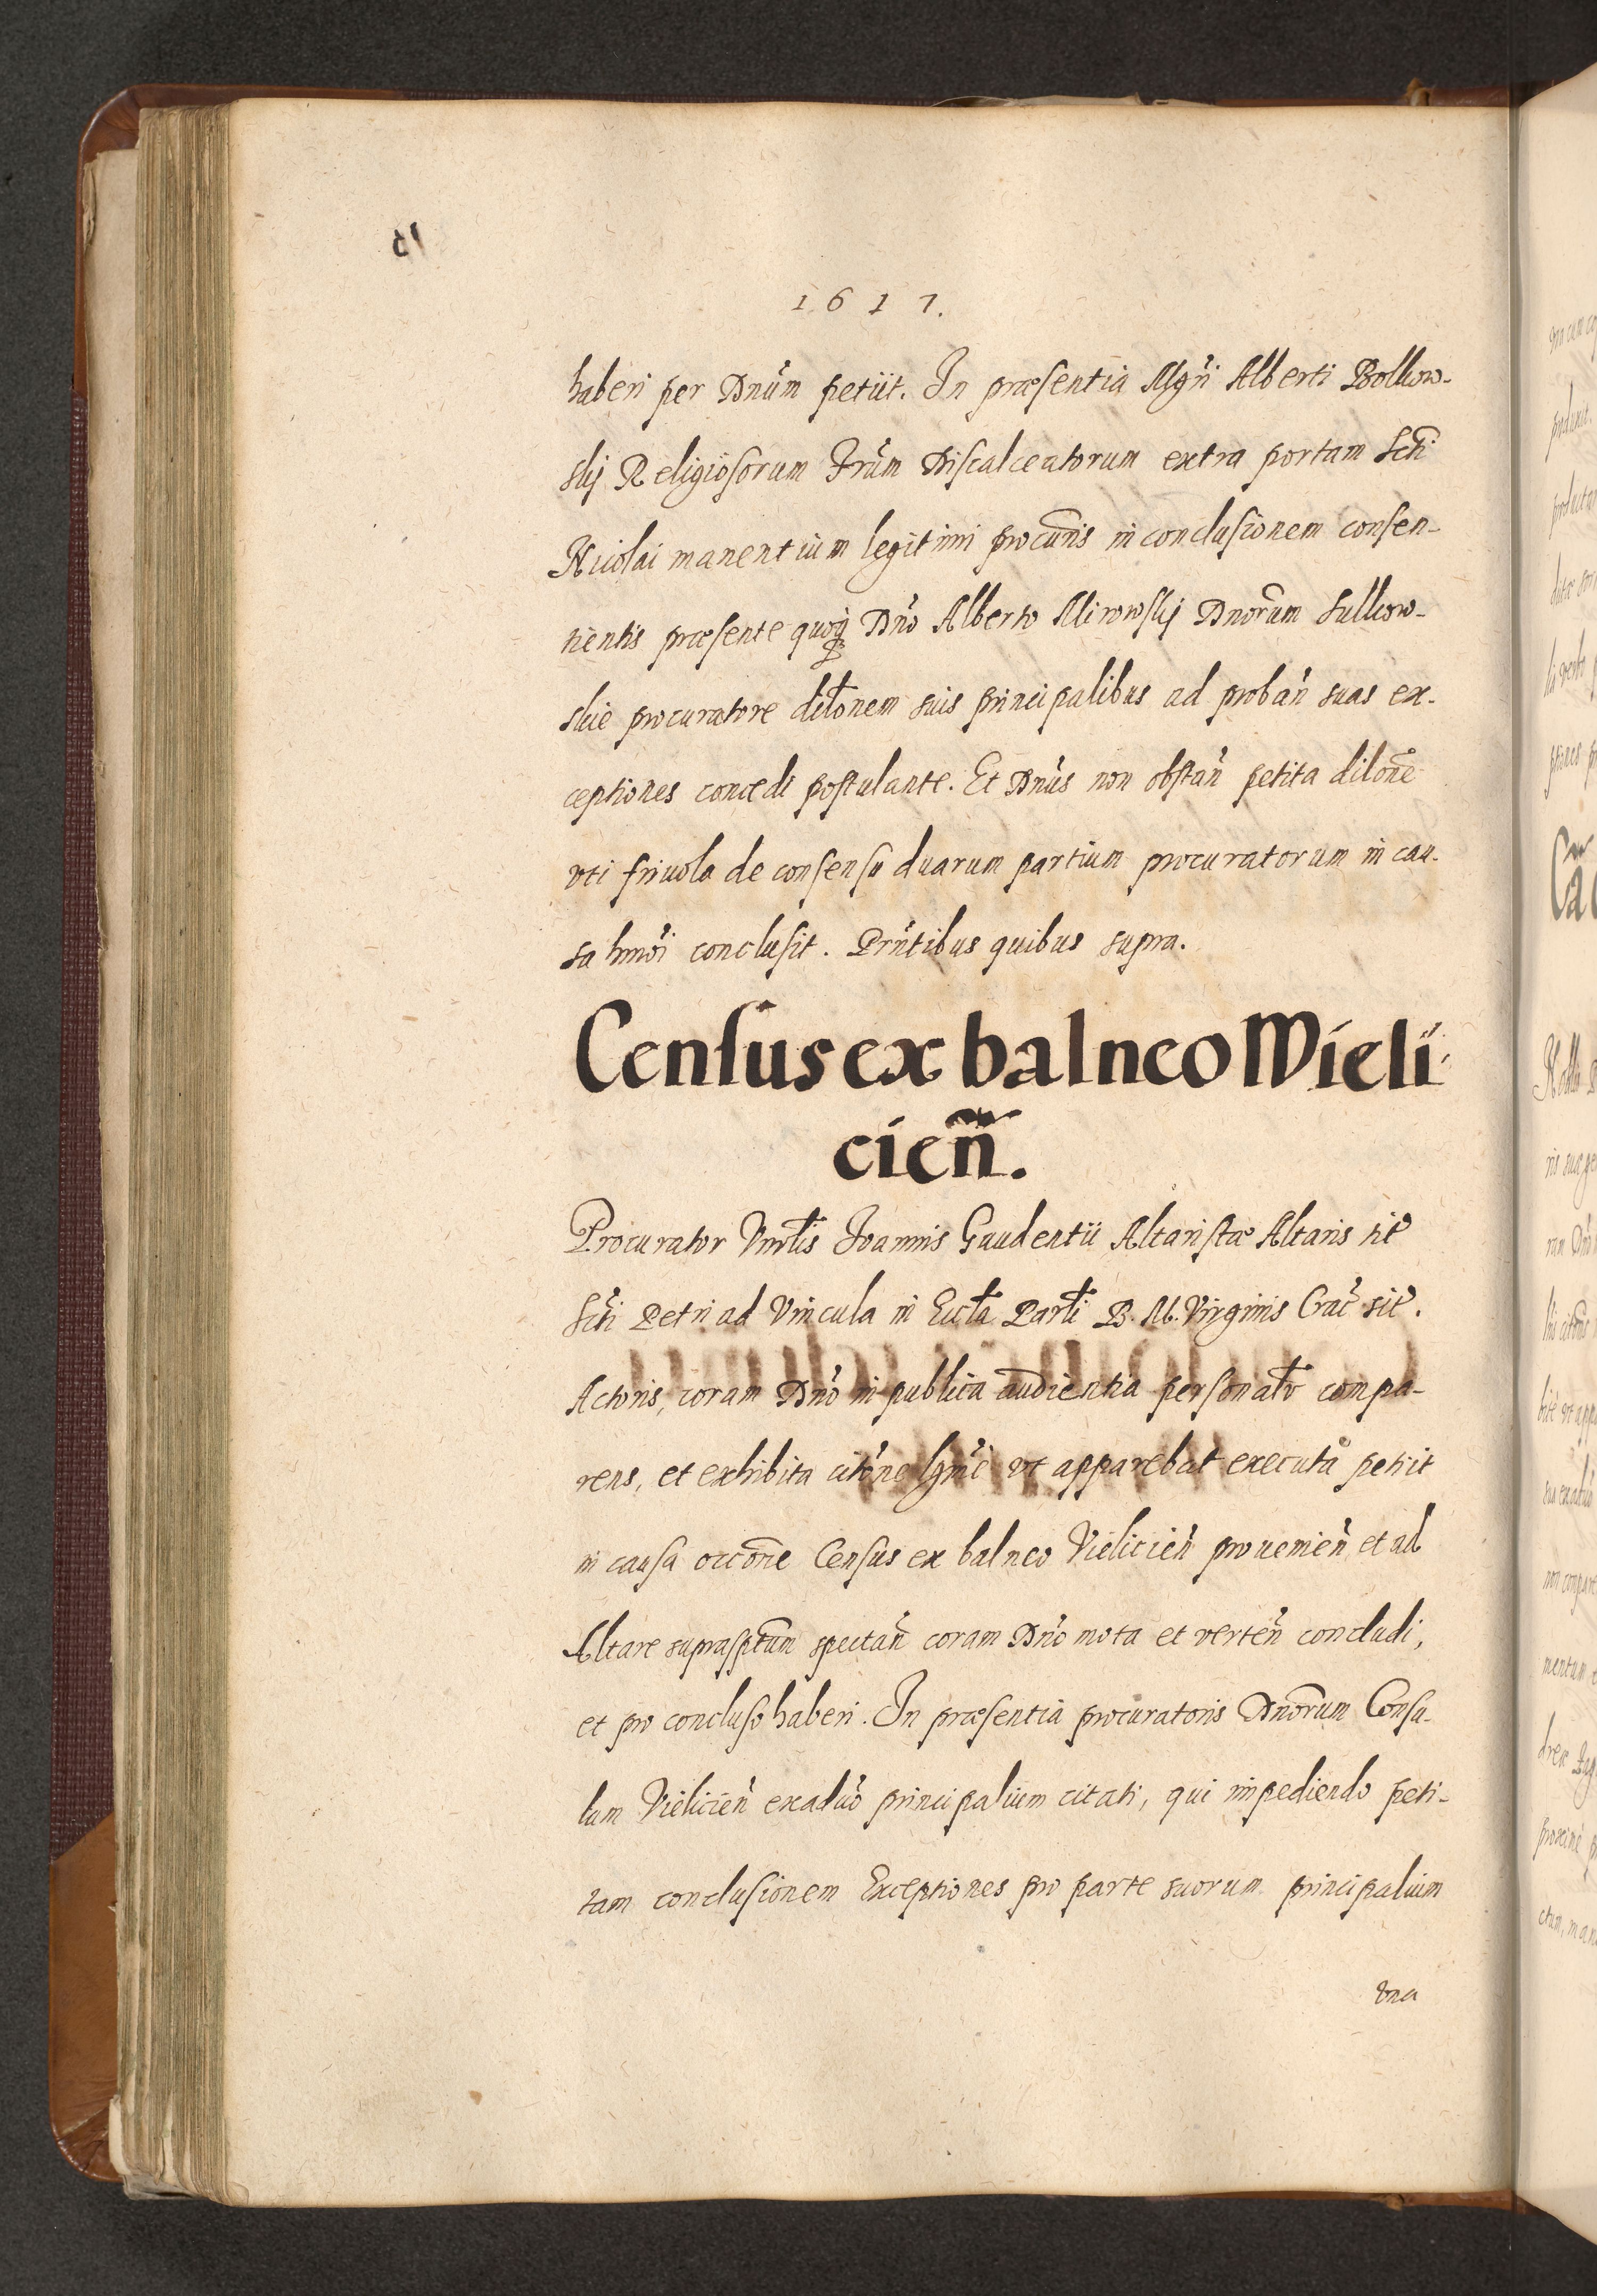 1617.
haberi per Dnūm petiit. In præsentia Mgrī Alberti Bolkow-
skij Religiosorum Frūm Discalceatorum extra portam Sctī
Nicolai manentium legitimi procurīs in conclusionem consen-
tientis præsente quoq Dnō Alberto Mirowskij Dnorūm Sulkow-
skie procuratore dilōnem suis principalibus ad probān suas ex-
ceptiones concedi postulante. Et Dnūs non obstān petita dilōne
vti friuola de consensu duarum partium procuratorum in cau-
sa hmōi conclusit. Prntībus quibus supra.
Census ex balneo Wieli-
cien̄.
Procurator Vnrlīs Ioannis Gaudentii Altaristæ Altaris tit
Sctī Petri ad Vincula in Eccłā Parłi B. M. Virginis Crac̄ sit.
Actoris, coram Dnō in publica audientia personalr compa-
rens, et exhibita citōne vt apparebat executa petiit
in causa occōne Census ex balneo Vielicien̄ prouenien̄ et ad
Altare suprasptūm spectān coram Dnō mota et vertēn concludi,
et pro concluso haberi. In præsentia procuratoris Dnorūm Consu-
lum Vielicien̄ exaduō principalium citati, qui impediendo peti-
tam conclusionem Exceptiones pro parte suorum principalium
vna